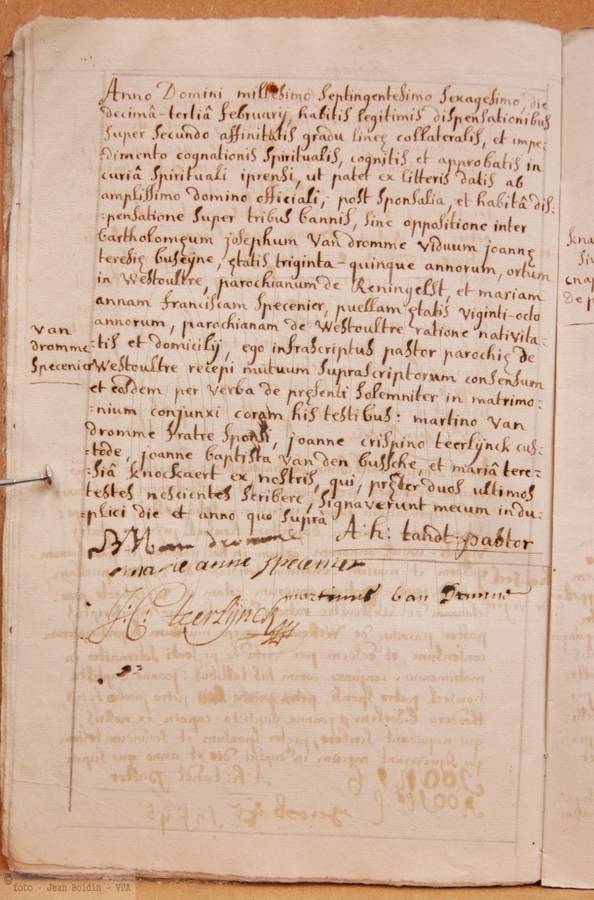 Anno Domini millesimo septingentesimo sexagesimo, die
decimâ-tertiâ february, habitis legitimis dispensationibus
super secundo affinitatis gradu lineę collateralis, et impe-
-dimento cognationis spiritualis, cognitis et approbatis in
curiâ spirituali iprensi, ut patet ex litteris datis ab
amplissimo domino officiali, post sponsalia, et habitâ dis-
-pensatione super tribus bannis, sine oppositione inter
bartholomęum josephum van dromme viduum joannę
teresię buseyne, ętatis triginta-quinque annorum, ortum
in Westoultre, parochianum de Reningelst, et mariam
annam franciscam specenier, puellam ętatis viginti-octo
annorum, parochianam de westoultre ratione nativita-
-tis et domicilij, ego infrascriptus pastor parochię de
Westoultre recepi mutuum suprascriptorum consensum
et eosdem per verba de pręsenti solemniter in matrimo-
-nium conjunxi coram his testibus: martino van
dromme fratre sponsi, joanne crispino teerlynck cus-
-tode, joanne baptista van den bussche, et mariâ tere-
-siâ knockaert ex nostris, qui, pręter duos ultimos
testes nescientes scribere, signaverunt mecum in du-
-plici die et anno quo supra
van
dromme
specenier
A: h: tandt: pastor
van dromme
marie anne specenier
martinus van Dromme
J: C: teerlynck
© foto - Jean Boldin - VPA